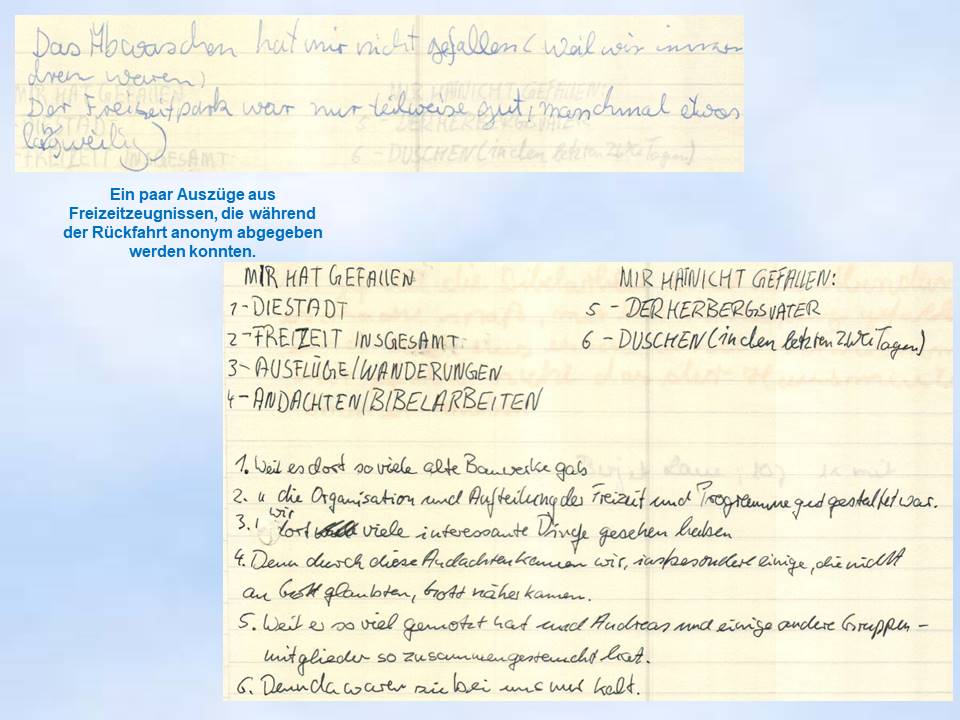 Das Abwaschen hat mir nicht gefallen (weil wir immer
dren waren)
Der Freizeitpark war nur teilweise gut, maschmal etwas
lagweilig)
Ein paar Auszüge aus
Freizeitzeugnissen, die während
der Rückfahrt anonym abgegeben
werden konnten.
MIR HAT GEFALLEN
1-DIE STADT
2-FREIZEIT INSGESAMT
3-AUSFLÜGE/WANDERUNGEN
4-ANDACHTEN/BIBELARBEITEN
MIR HAT NICHT GEFALLEN:
5 - DER HERBERGSVATER
6 - DUSCHEN (in den letzten zwei Tagen)
1. Weil es dort so viele alte Bauwerke gab
2. " die Organisation und Aufteilung der Freizeit und Programme gut gestaltet war.
3. " wir dort viele interessante Dinge gesehen haben
4. Denn durch diese Andachten kamen wir, insbesondere einige, die nicht
an Gott glaubten, Gott näher kamen.
5. Weil er so viel gemotzt hat und Andreas und einige andere Gruppen-
mitglieder so zusammengestaucht hat.
6. Denn da waren sie bei uns nur kalt.